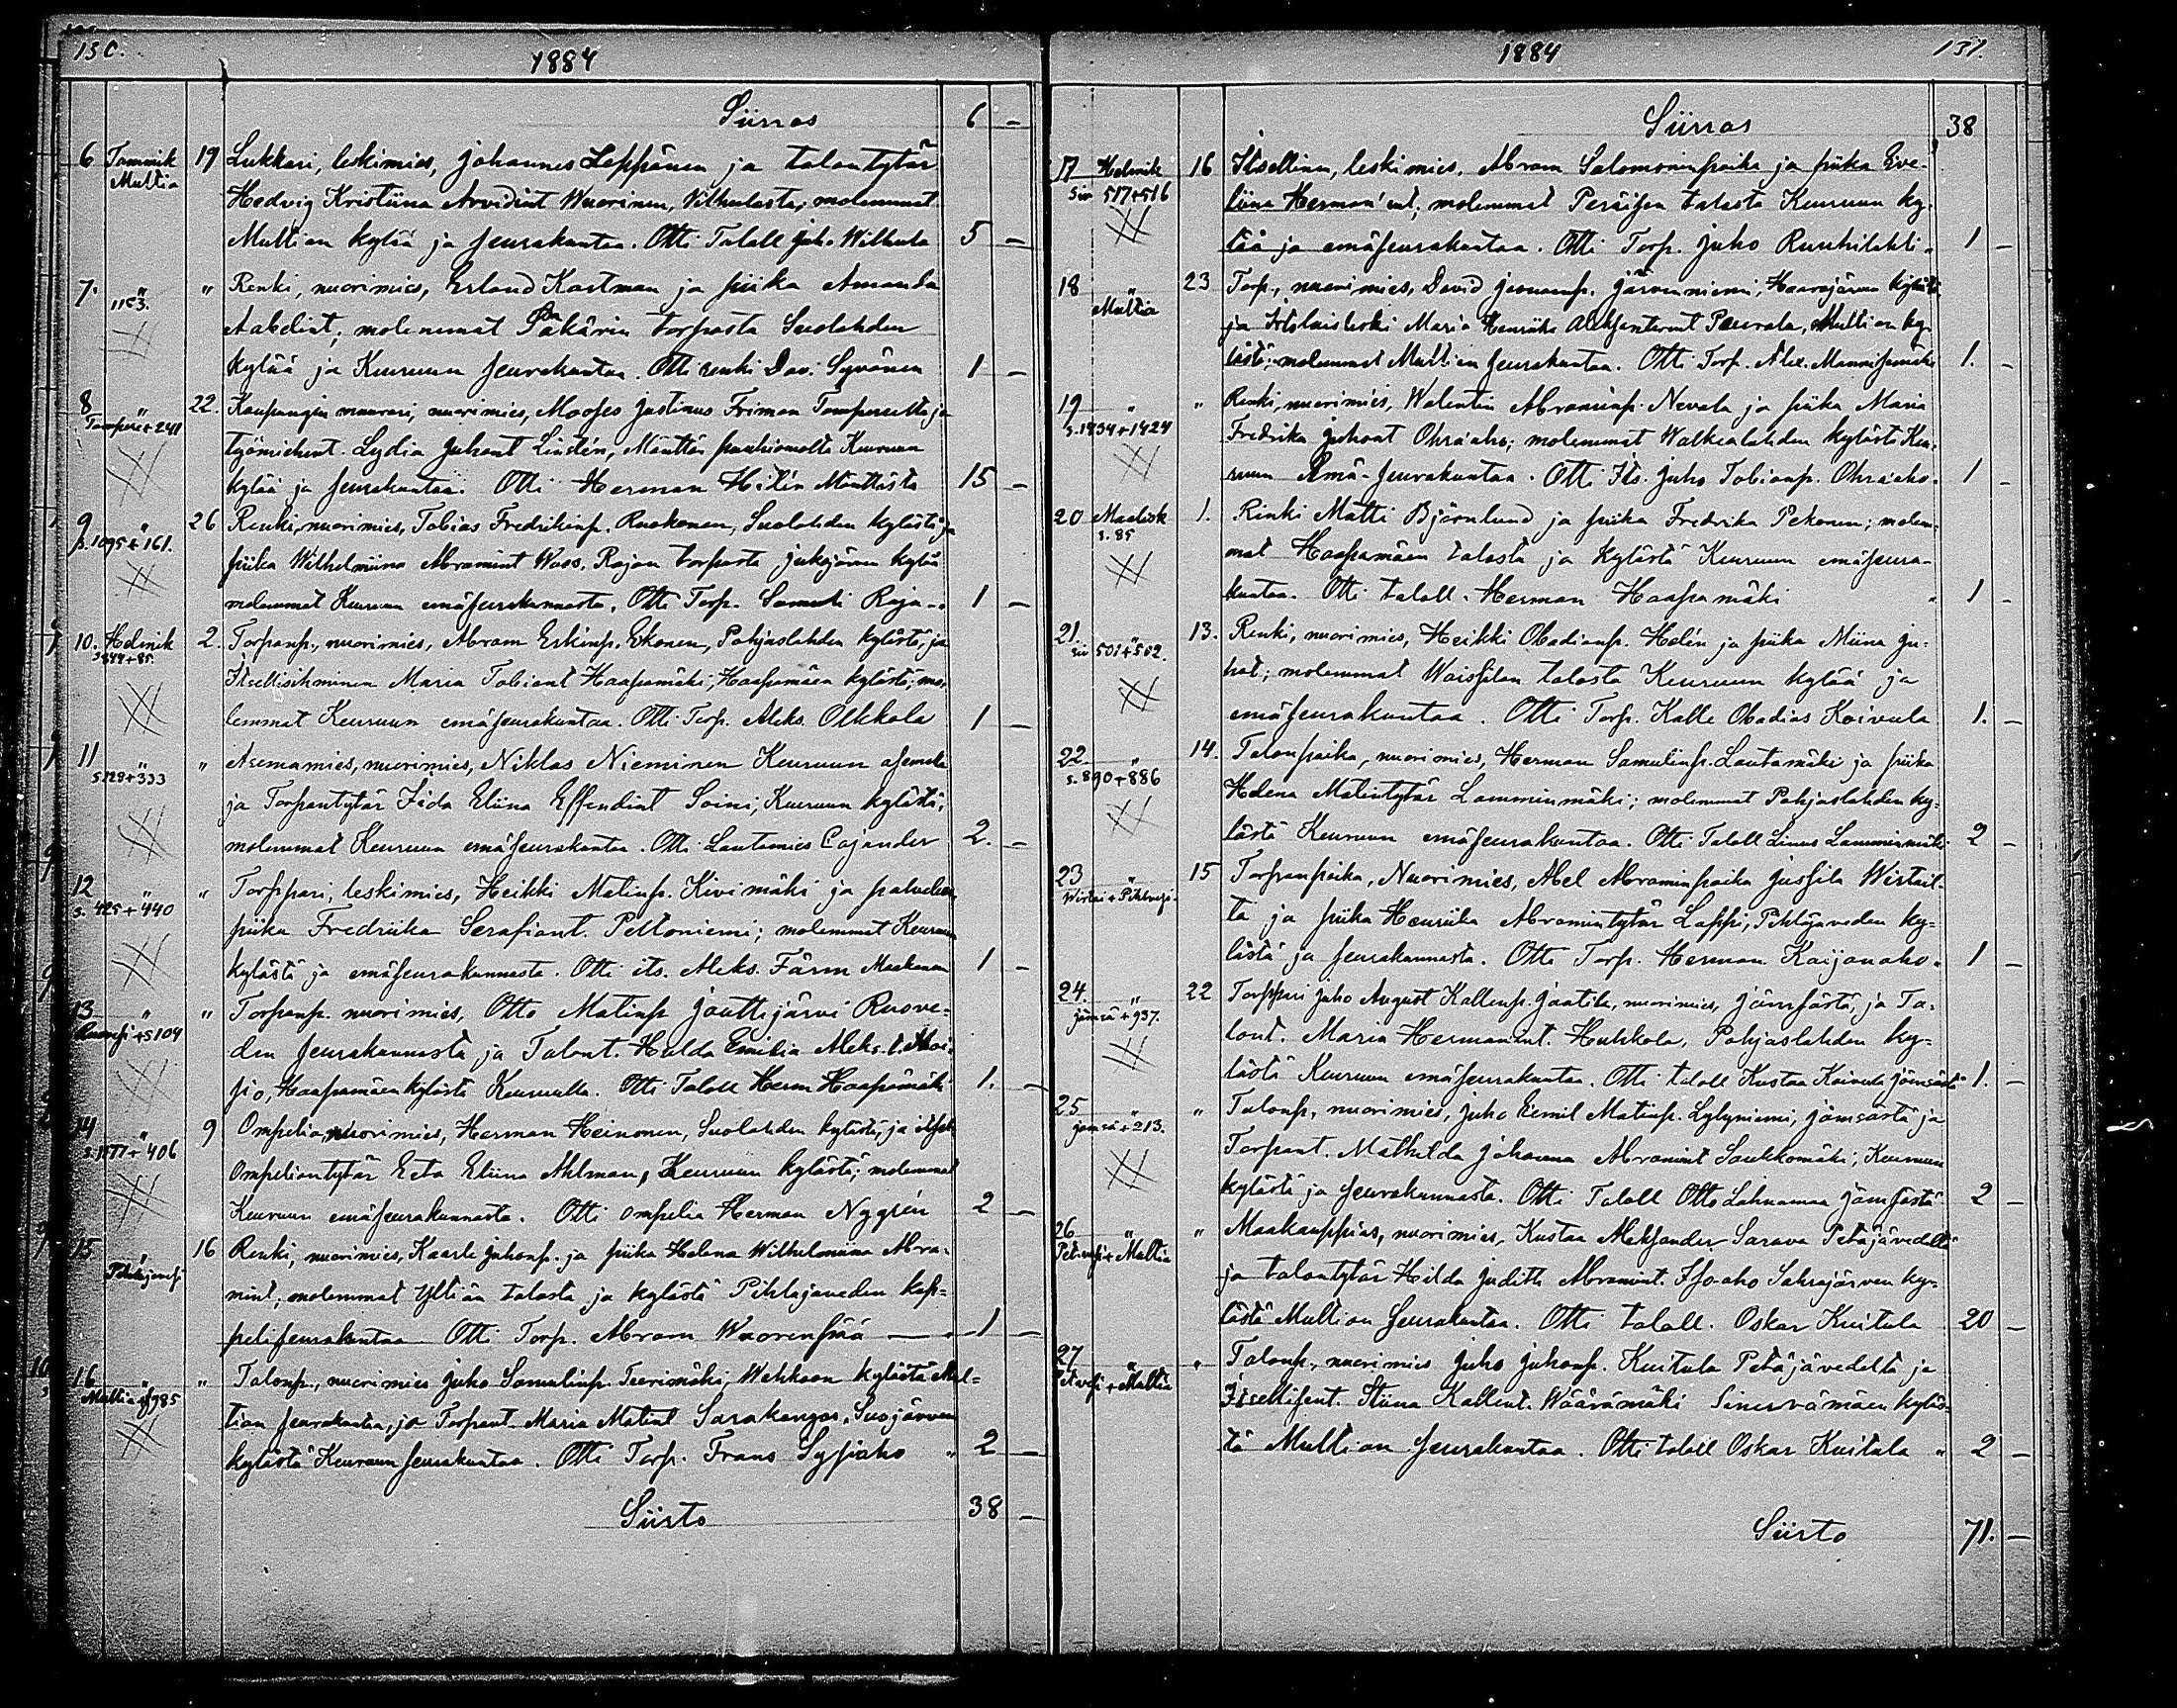 130.
1884
Siirros 6 -
6 Tammik 19 Lukkari, leskimies, Johannes Leppänen ja talontytär
Multia Hedvig Kristiina Arvidint Wuorinen, Vilhulasta; molemmat
Multian kylää ja seurakuntaa. Otti Taloll Juho Wilhula 5 -
7. " " Renki, nuorimies, Erland Kastman ja piika Amanda
1153. Aabelint; molemmat Pakärin torpasta Suolahden
kylää ja Keuruun seurakuntaa. Otti renki Dav. Syvänen 1 -
8 " 22. Kaupungin muurari, nuorimies, Mooses Justinus Friman Tampereelta ja
Tampere + 241 työmiehent. Lydia Juhont Lindén, Mänttän puuhiomolta Keuruun
kylää ja seurakuntaa. Otti Herman Helén Mänttästä 15 -
9 " 26 Renki, nuorimies, Tobias Fredrikinp. Ruokonen, Suolahden kylästä ja
s. 1095 + 161. piika Wilhelmiina Abramint Wass, Rajan torpasta Jukojärven kylää
molemmat Keuruun emäseurakunnasta. Otti Torp. Samuli Raja 1 -
10. Helmik 2. Torpanp., nuorimies, Abram Erkinp. Ekonen, Pohjoslahden kylästä, ja
s 844 + 85. Itsellisihminen Maria Tobiant Haapamäki, Haapamäen kylästä; mo-
lemmat Keuruun emäseurakuntaa. Otti Torp. Aleks. Olkkola 1 -
11 " " Asemamies, nuorimies, Niklas Nieminen Keuruun asemalta
s 129 + 333 ja Torpantytär Iida Eliina Effendint Soini; Keuruun kylästä;
molemmat Keuruun emäseurakuntaa. Otti Lautamies Cajander 2. -
12 " " Torppari, leskimies, Heikki Matinp. Kivimäki ja palvelus-
s. 425 + 440 piika Fredriika Serafiant. Peltoniemi; molemmat Keuruun
kylästä ja emäseurakunnasta. Otti its. Aleks. Färm 1 -
13 " " Torpanp. nuorimies, Otto Matinp Jouttijärvi Ruove-
Ruovesi + s 104 den seurakunnasta ja Talont. Hulda Emilia Aleks. t.
Haapamäen kylästä Keuruulta. Otti Taloll Herm Haapamäki 1. -
14 " 9 Ompelia, nuorimies, Herman Heinonen, Suolahden kylästä, ja itsell.
s. 1177 + 406 Ompeliantytär Eeta Eliina Ahlman, Keuruun kylästä; molemmat
Keuruun emäseurakunnasta. Otti ompelia Herman Nygrén 2 -
15 " 16 Renki, nuorimies, Kaarle Juhonp. ja piika Helena Wilhelmiina Abra-
Pihlajavesi mint; molemmat Yltiän talosta ja kylästä Pihlajaveden kap-
peliseurakuntaa Otti Torp. Abram Wuorenpää 1 -
16 " " Talonp., nuorimies Juho Samulinp. Teerimäki, Wehkoon kylästä Mul-
Multia + s 985 tian seurakuntaa, ja Torpant Maria Matint Sarakangas, Suojärven
kylästä Keuruun seurakuntaa. Otti Torp. Frans Sysiaho " 2 -
Siirto 38 -
131.
1884
Siirros 38
17 Helmik 16 Itsellinen, leskimies, Abram Salomoninpoika ja piika Eve-
Siv 517 + 516 liina Herman'int; molemmat Peräisen talosta Keuruun ky-
lää ja emäseurakuntaa. Otti Torp. Juho Ruuhilahti " 1 -
18 " 23 Torp., nuorimies, David Joonaanp. Järvenniemi, Haarajärven kylästä
Multia ja Itslaisleski Maria Henrika Aleksanterint Peurala, Multian ky-
lästä; molemmat Multian seurakuntaa. Otti Torp. Alex. Mannisenmäki 1. -
19 " " Renki, nuorimies, Walentin Abraminp. Nevala ja piika Maria
s. 1434 + 1424 Fredrika Juhont Ohra'aho; molemmat Walkealahden kylästä Keu-
ruun Emä-seurakuntaa. Otti Its. Juho Tobianp. Ohra'aho. 1 -
20 Maalisk 1. Renki Matti Björnlund ja piika Fredrika Pekonen; molem-
s. 85 mat Haapamäen talosta ja kylästä Keuruun emäseura-
kuntaa. Otti taloll. Herman Haapamäki " 1 -
21. " 13. Renki, nuorimies, Heikki Obadianp. Helén ja piika Miina Ju-
siv 501 + 502. hot; molemmat Waissilan talosta Keuruun kylää ja
emäseurakuntaa. Otti Torp. Kalle Obadias Koivula 1. -
22. " 14. Talonpoika, nuorimies, Herman Samulinp. Lautamäki ja piika
s. 890 + 886 Helena Matintytär Lamminmäki; molemmat Pohjoslahden ky-
lästä Keuruun emäseurakuntaa. Otti Taloll Linus Lamminmäki 2 -
23 " 15 Torpanpoika, Nuorimies, Abel Abraminpoika Jussila Wirtail-
Wirtai + Pihlvesi ta ja piika Henriika Abramintytär Lappi, Pihlajaveden ky-
lästä ja seurakunnasta. Otti Torp. Herman Kaijanaho. 1 -
24. " 22 Torppari Juho August Kallenp. Jaatila, nuorimies, Jämsästä, ja Ta-
Jämsä + 937. lont. Maria Hermanint. Huhkola, Pohjoslahden ky-
lästä Keuruun emäseurakuntaa. Otti taloll Kustaa Koivula Jämsästä 1. -
25 " " Talonp., nuorimies, Juho Eemil Matinp. Lylyniemi, Jämsästä ja
Jämsä + 213. Torpant. Mathilda Johanna Abramint Saukkomäki; Keuruun
kylästä ja seurakunnasta. Otti Taloll Otto Lahnamaa Jämsästä 2 -
26 " " Maakauppias, nuorimies, Kustaa Aleksander Sarava Petäjävedeltä
Pet.vesi + Multia ja talontytär Hilda Judith Abramint. Iso-aho Sahrajärven ky-
lästä Multian seurakuntaa. Otti taloll. Oskar Kuitula 20 -
27 " " Talonp., nuorimies Juho Juhonp. Kuitula Petäjävedeltä ja
Pet.vesi + Multia Itsellisent. Stiina Kallent. Wäärämäki Sinervämäen kyläs-
tä Multian seurakuntaa. Otti taloll Oskar Kuitula " 2 -
Siirto 71. -